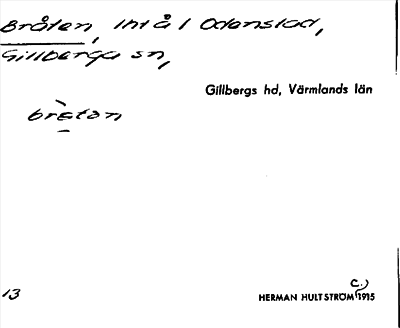 Bråten, int å i Odenstad,
Gillberga sn,
Gillbergs hd, Värmlands län
brètan
13
c.)
HERMAN HULTSTRÖM 1915